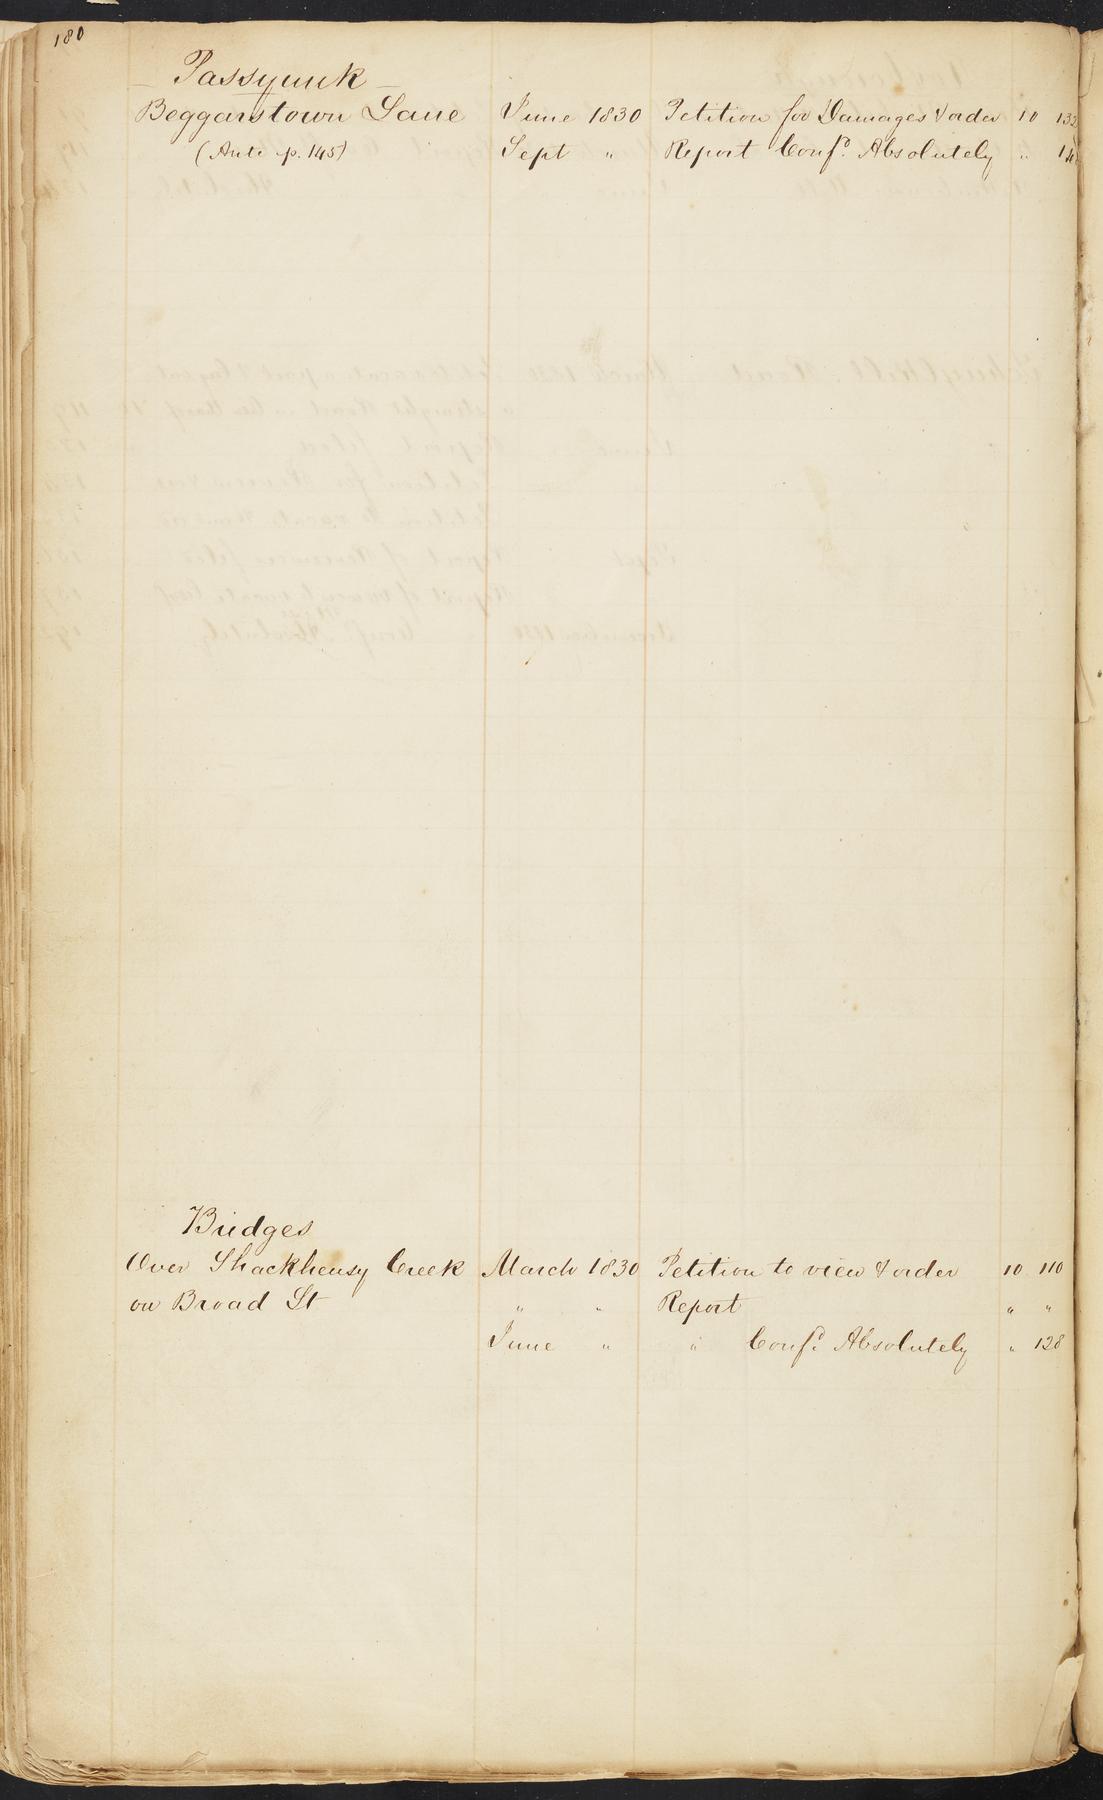 180
Passyunk
Beggarstown Lane June 1830 Petition for Damages & order 10 132
(Ante p. 145) Sept " Report Confd. Absolutely "
Bridges
Over Shackhensy Creek March 1830 Petition to view & order 10 110
on Broad St " " Report " "
June " " Confd. Absolutely " 128